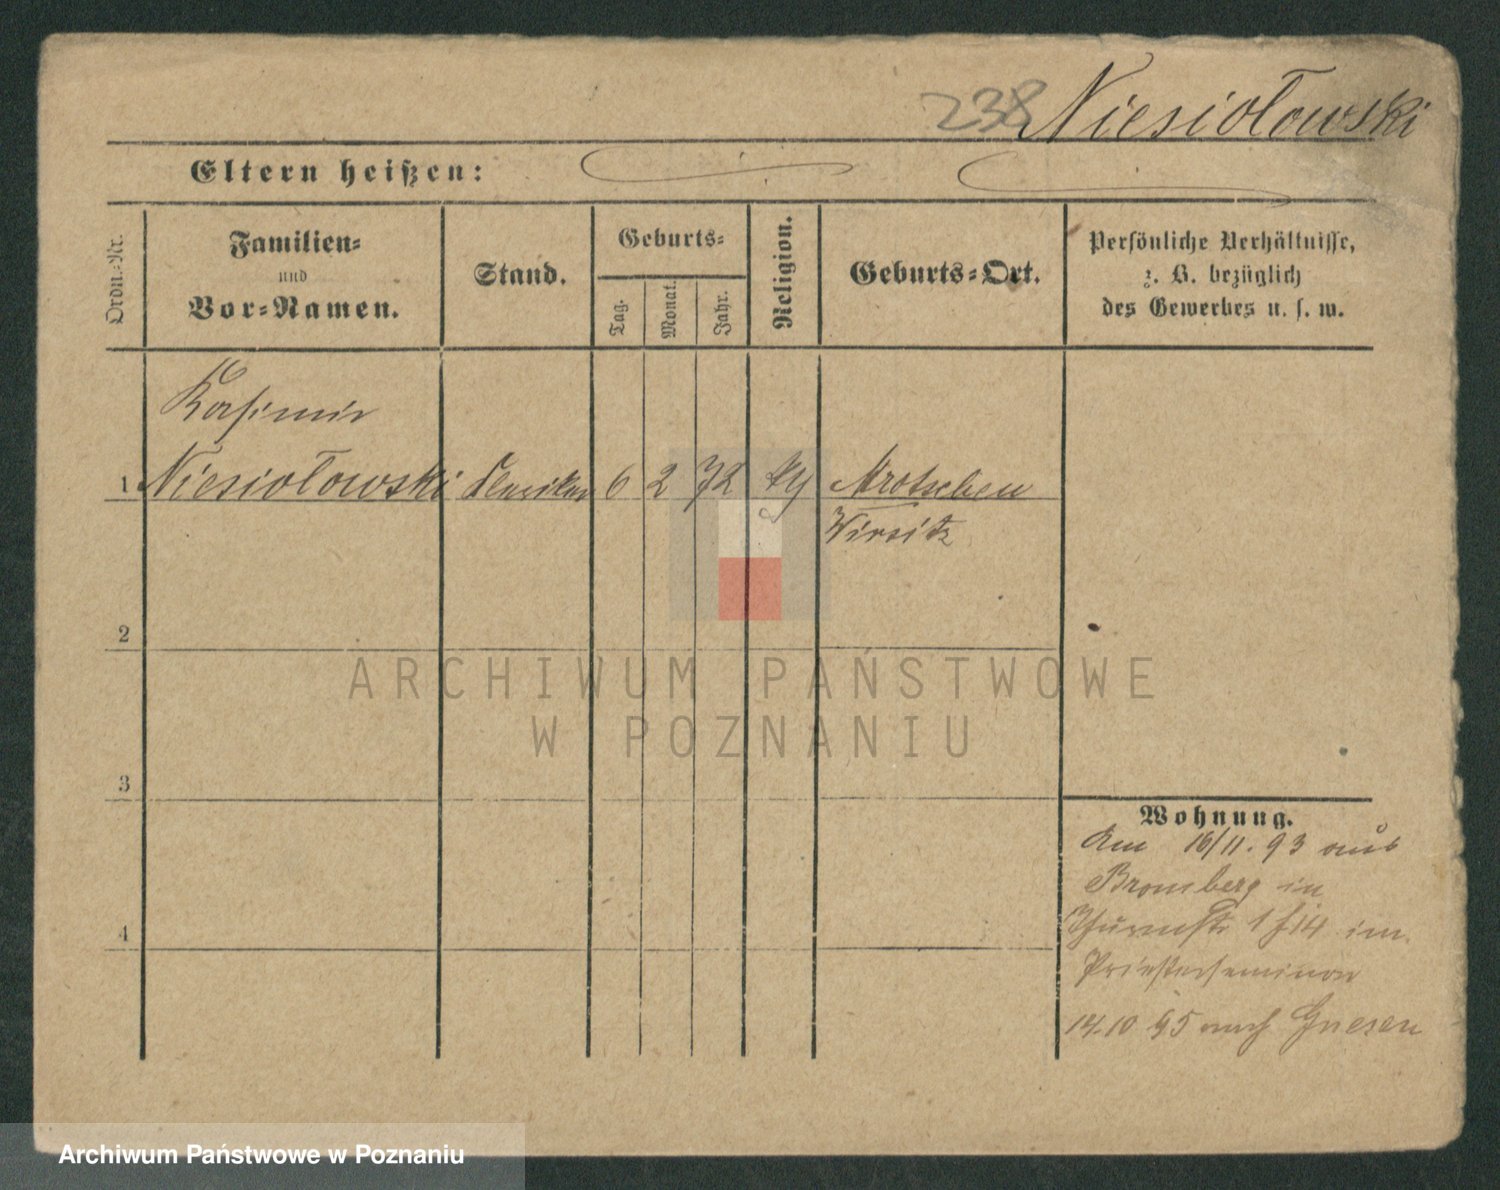 238 Niesiołowski
Eltern heißen:
Ordn.-Nr.
Familien-
und
Vor-Namen.
Stand.
Geburts-
Tag.
Monat.
Jahr.
Religion.
Geburts-Ort.
Persönliche Verhältnisse,
z. B. bezüglich
des Gewerbes u. s. w.
Kasimir
1 Niesiołowski Kleriker 6 2 72 Mrotschen
Wirsitz
2
3
4
Wohnung.
Am 16/11. 93 aus
Bromberg in
1 im
Priesterseminar
14.10 95 nach Gnesen
ARCHIWUM PAŃSTWOWE
W POZNANIU
Archiwum Państwowe w Poznaniu